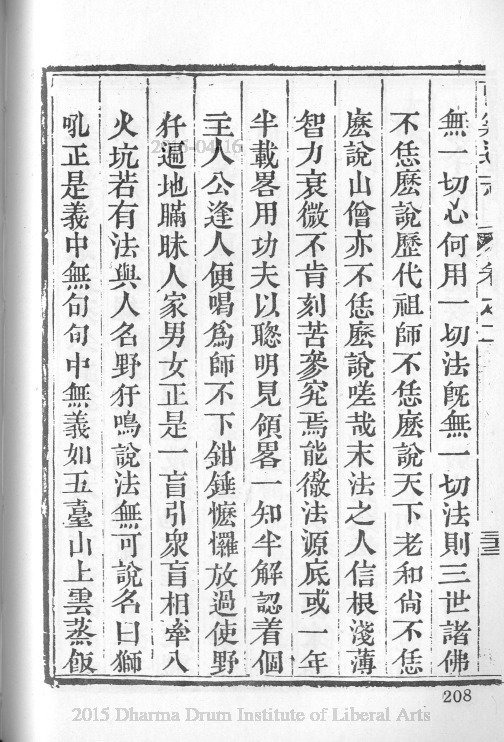 無一切心何用一切法既無一切法則三世諸佛
不恁麽說歷代祖師不恁麽說天下老和尙不恁
麽說山僧亦不恁麽說嗟哉末法之人信根淺薄
智力衰微不肯刻苦叅究焉能徹法源底或一年
半載畧用功夫以聰明見領畧一知半解認着個
主人公逢人便唱爲師不下鉗錘懡㦬放過使野
犴遍地瞞昧人家男女正是一盲引衆盲相牽入
火坑若有法與人名野犴鳴說法無可說名曰獅
吼正是義中無句句中無義如五臺山上雲蒸飯
208
2015 Dharma Drum Institute of Liberal Arts